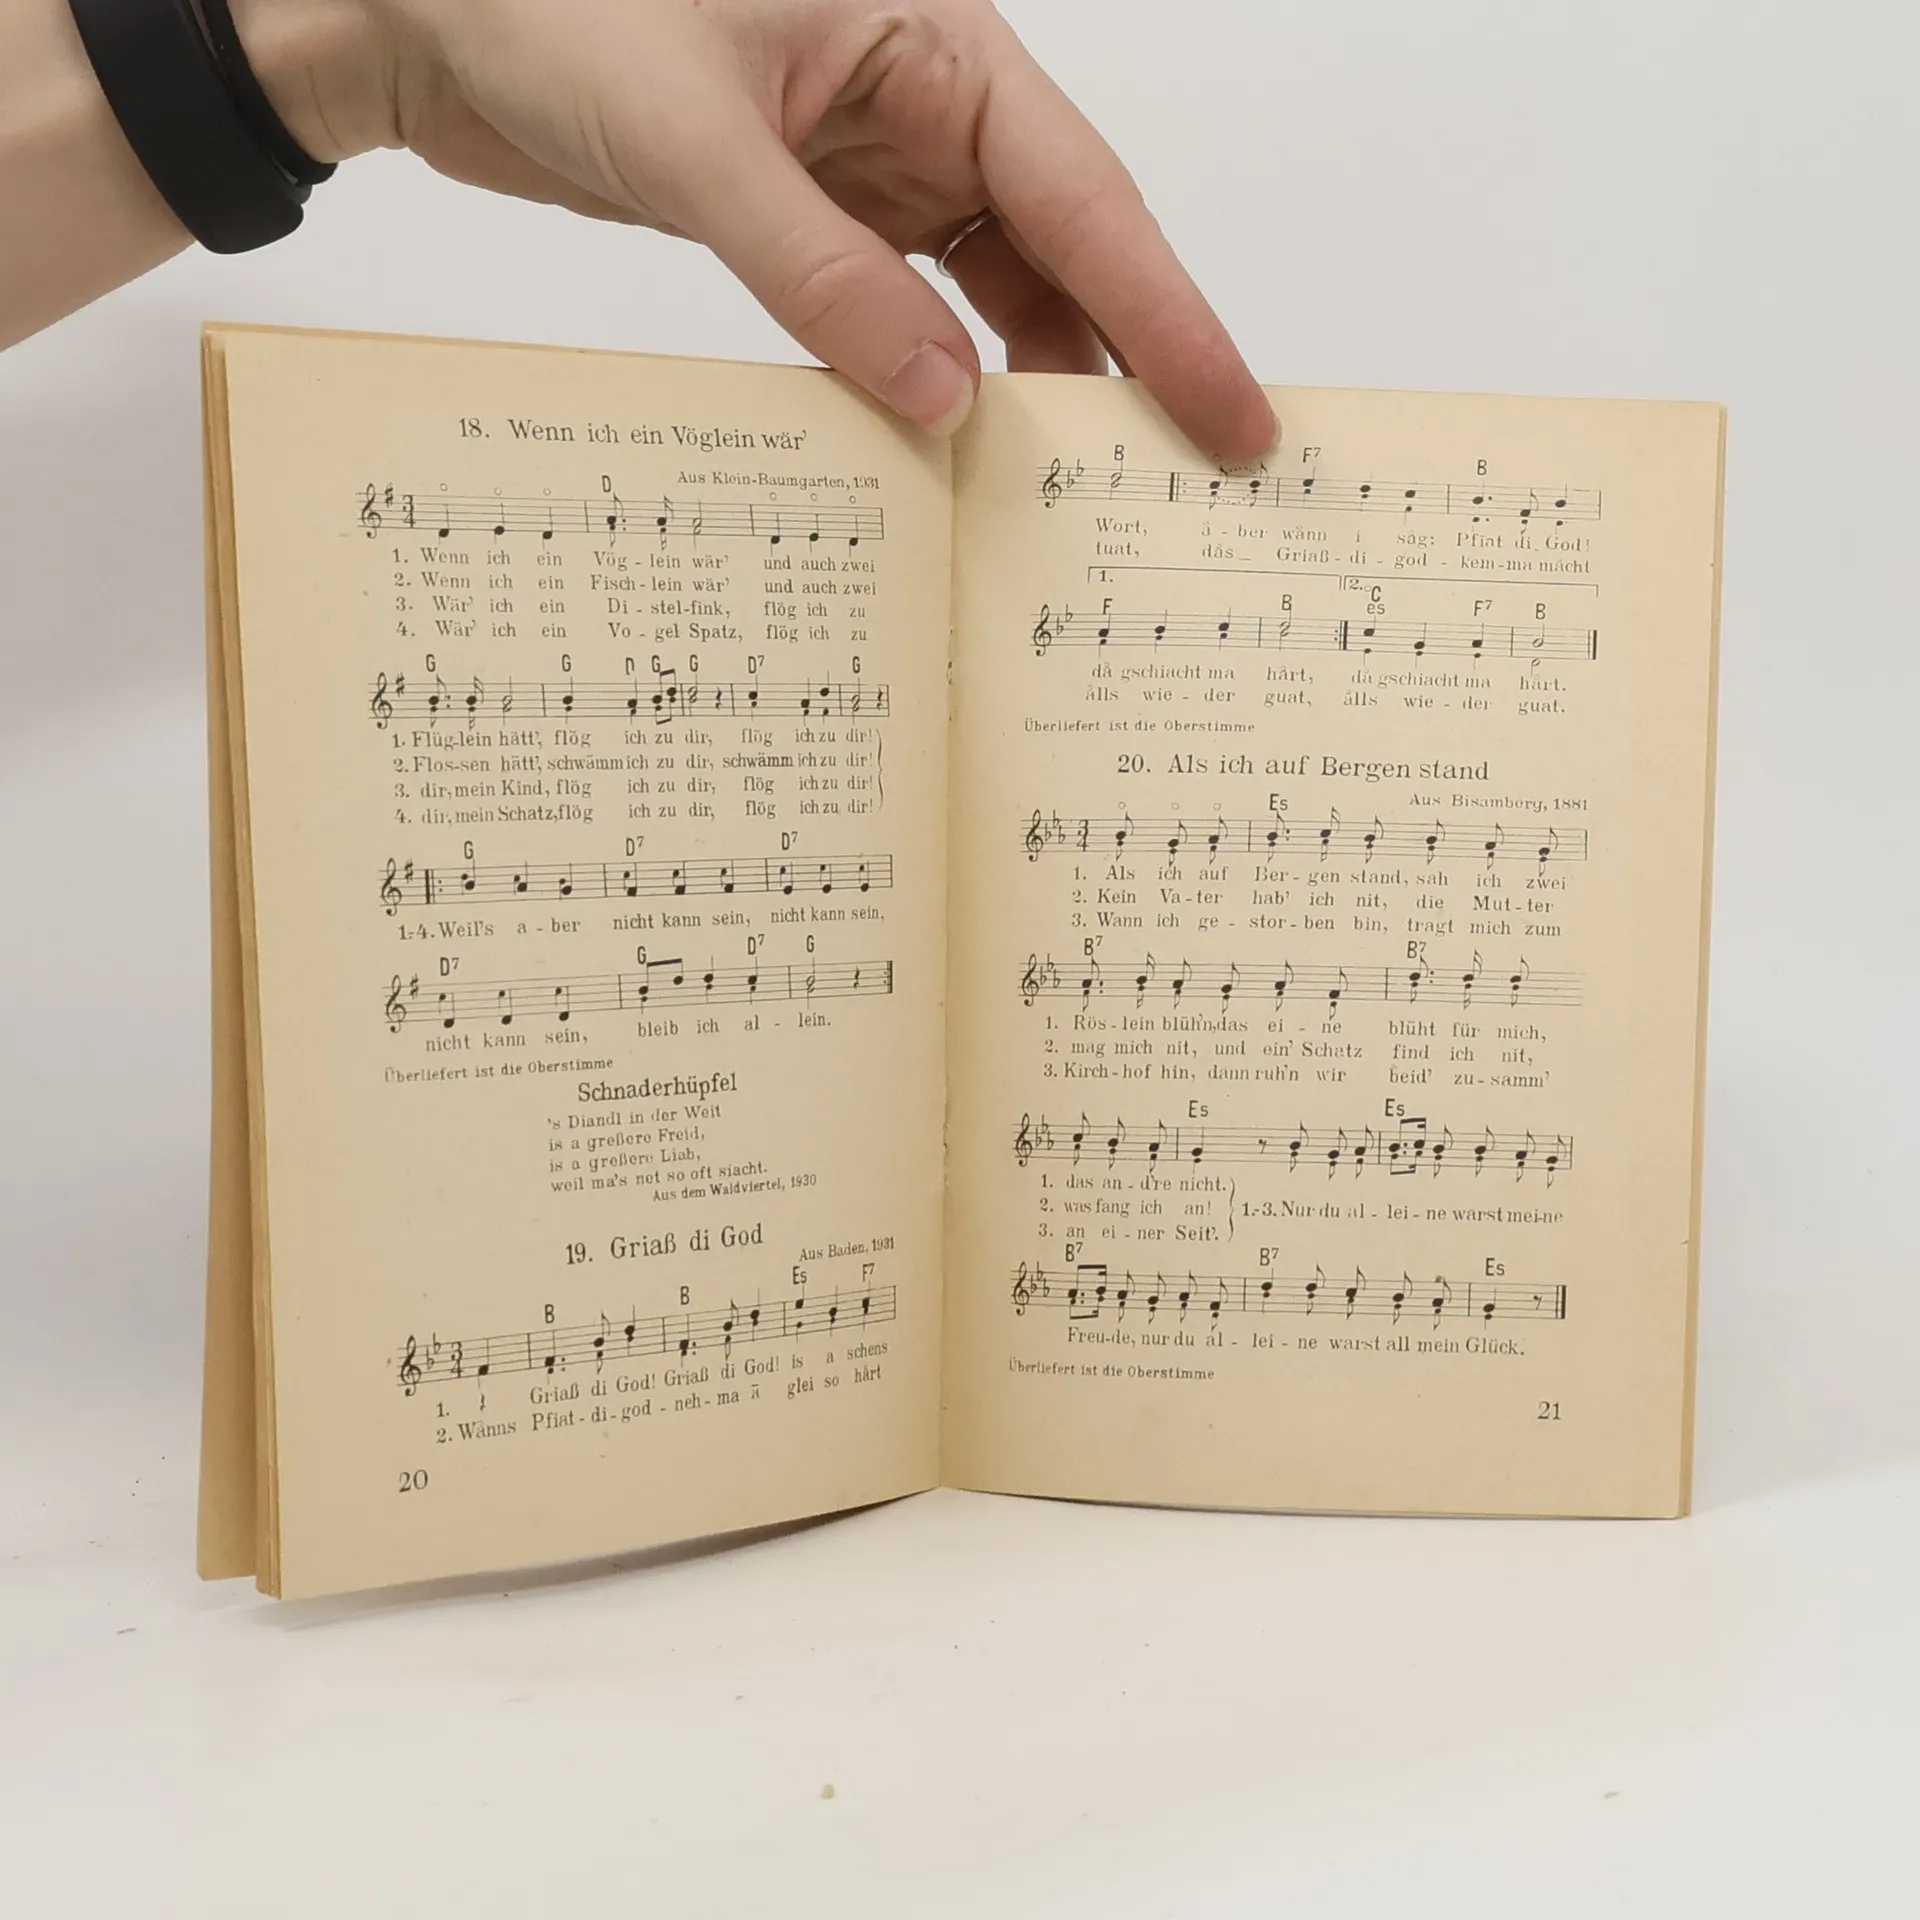 18. Wenn ich ein Vöglein wär'
Aus Klein-Baumgarten, 1931
D
1. Wenn ich ein Vög - lein wär' und auch zwei
2. Wenn ich ein Fisch - lein wär' und auch zwei
3. Wär' ich ein Di - stel-fink, flög ich zu
4. Wär' ich ein Vo - gel Spatz, flög ich zu
G G D G G D7 G
1. Flüg-lein hätt', flög ich zu dir, flög ich zu dir!
2. Flos-sen hätt', schwämm ich zu dir, schwämm ich zu dir!
3. dir, mein Kind, flög ich zu dir, flög ich zu dir!
4. dir, mein Schatz, flög ich zu dir, flög ich zu dir!
G D7 D7
1.-4. Weil's a - ber nicht kann sein, nicht kann sein,
D7 G D7 G
nicht kann sein, bleib ich al - lein.
Überliefert ist die Oberstimme
Schnaderhüpfel
's Diandl in der Weit
is a greßere Freid,
is a greßere Liab,
weil ma's net so oft siacht.
Aus dem Waldviertel, 1930
19. Griaß di God
Aus Baden, 1931
B B Es F7
1. Griaß di God! Griaß di God! is a schens
2. Wånns Pfiat - di - god - neh - ma ā glei so hårt
20
B F7 B
Wort, å - ber wånn i såg: Pfiat di God!
tuat, dås _ Griaß - di - god - kem-ma måcht
1. 2.
F B C es F7 B
då gschiacht ma hårt, då gschiacht ma hårt.
ålls wie - der guat, ålls wie - der guat.
Überliefert ist die Oberstimme
20. Als ich auf Bergen stand
Aus Bisamberg, 1881
Es
1. Als ich auf Ber - gen stand, sah ich zwei
2. Kein Va - ter hab' ich nit, die Mut - ter
3. Wann ich ge - stor - ben bin, tragt mich zum
B7 B7
1. Rös - lein blüh'n, das ei - ne blüht für mich,
2. mag mich nit, und ein' Schatz find ich nit,
3. Kirch - hof hin, dann ruh'n wir beid' zu - samm'
Es Es
1. das an - d're nicht.
2. was fang ich an! 1.-3. Nur du al - lei - ne warst mei-ne
3. an ei - ner Seit'.
B7 B7 Es
Freu-de, nur du al - lei - ne warst all mein Glück.
Überliefert ist die Oberstimme
21